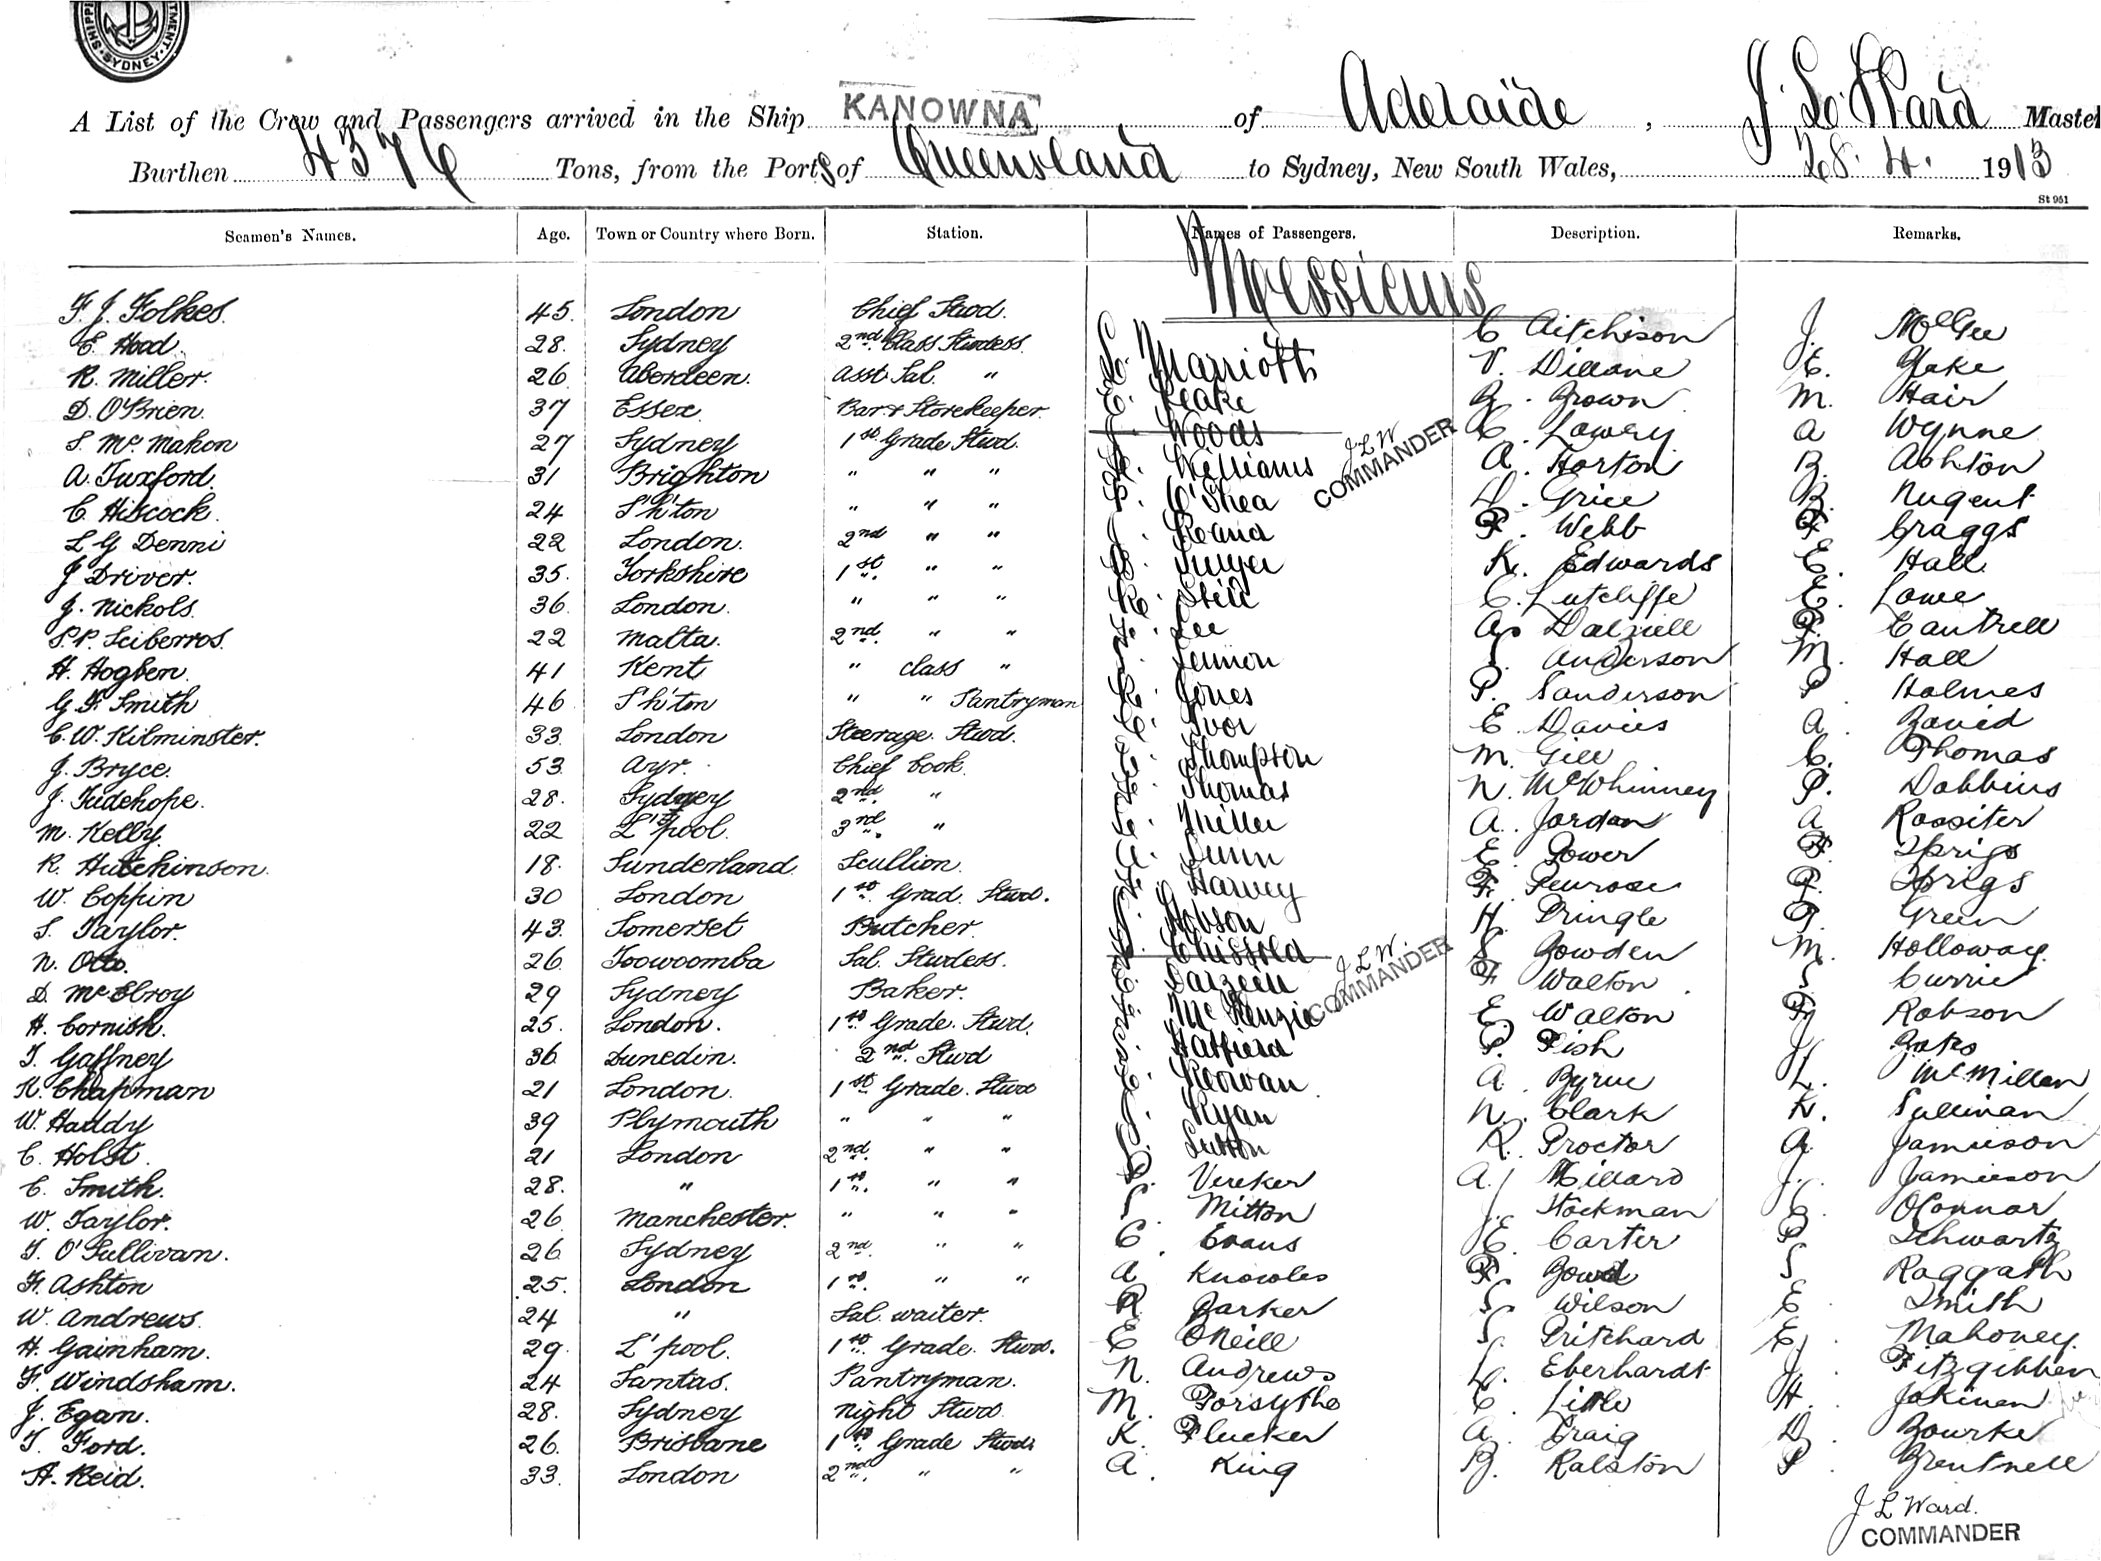 SYDNEY
A List of the Crew and Passengers arrived in the Ship KANOWNA of Adelaide, J. L. Ward Master
Burthen 4376 Tons, from the Ports of Queensland to Sydney, New South Wales, 28. 4. 1913
St 951
Seamen's Names. Age. Town or Country where Born. Station. Names of Passengers. Description. Remarks.
Messieurs
F. J. Folkes. 45. London Chief Stwd. C Aitchison J. McGee
E. Hood. 28. Sydney 2nd Class Stwdess. Marriott V. Dillane E. Yake
R. Miller. 26 Aberdeen. Asst Sal. " Leake B. Brown M. Hair
D. O'Brien. 37 Essex. Bar & Storekeeper. Woods C. Lowery A Wynne
S. Mc Mahon 27 Sydney 1st Grade Stwd. Williams J L W COMMANDER A. Horton B. Ashton
A. Tuxford. 31 Brighton " " " O'Shea H. Grice B. Nugent
C. Hiscock. 24 S'h'ton " " " Keana F. Webb F Craggs
L G Denni 22 London. 2nd " " K. Edwards E. Hall
J Driver. 35. Yorkshire 1st " " Still C. Sutcliffe E. Lowe
J. Nickols. 36. London. " " " Lee A. Dalziell F. Cantrell
S. P. Sciberros. 22 Malta. 2nd. " " Lennon S. Anderson M. Hall
H. Hogben. 41 Kent " class " Jones P. Sanderson P. Holmes
G. F. Smith 46 S'h'ton " " Pantryman Ivor E Davies A. David
C. W. Kilminster. 33 London Steerage. Stwd. Thompson M. Gill C. Thomas
J. Bryce. 53. Ayr. Chief Cook. Thomas N. McWhinney P. Dobbins
J. Tudehope. 28. Sydney 2nd. " Miller A. Jordan A Rossiter
M. Kelly. 22 L'pool. 3rd. " Dunn E. Power F. Sprigs
R. Hutchinson. 18. Sunderland. Scullion. Harvey F. Penrose F. Sprigs
W. Coppin 30 London 1st. Grad. Stwd. Hobson H. Pringle P. Green
S. Taylor. 43. Somerset Butcher. Chissold S. Bowden M. Holloway.
N. Otto. 26 Toowoomba Sal. Stwdess. Dalzell J L W. COMMANDER F Walton S Currie
D. McElroy 29 Sydney Baker. McKenzie E. Walton F Robson
H. Cornish. 25. London. 1st Grade. Stwd. Hatfield P. Fish J. Yates
T. Gaffney 36 Dunedin. 2nd Stwd Keowan A. Byrne L. McMillan
K. Chapman 21 London. 1st Grade. Stwd Ryan N. Clark K. Sullivan
W. Haddy 39 Plymouth " " " Sutton R. Proctor A. Jamieson
C. Holst. 21 London 2nd. " " P. Vereker A. Millard J. Jamieson
C. Smith. 28. " 1st. " " S. Mitton J. Stockman C. OConnor
W. Taylor. 26 Manchester. " " " C. Evans E. Carter P Schwartz
T. O'Sullivan. 26 Sydney 2nd. " " A Knowles F. Gowd S Raggath
F. Ashton 25. London 1st. " " R Barker S. Wilson E. Smith
W. Andrews. 24 " Sal. waiter. E ONeill S. Pritchard E. Mahoney.
H. Gainham. 29. L'pool. 1st. Grade. Stwd. N. Andrews L. Eberhardt J. Fitzgibben
F. Windsham. 24 Pantryman. M. Forsythe C. Little H.
J. Egan. 28. Sydney Night Stwd K. Flucker A. Craig D. Bourke
T. Ford. 26. Brisbane 1st Grade Stwd. A. King B. Ralston P.
H. Reid. 33. London 2nd. " "
J L Ward.
COMMANDER